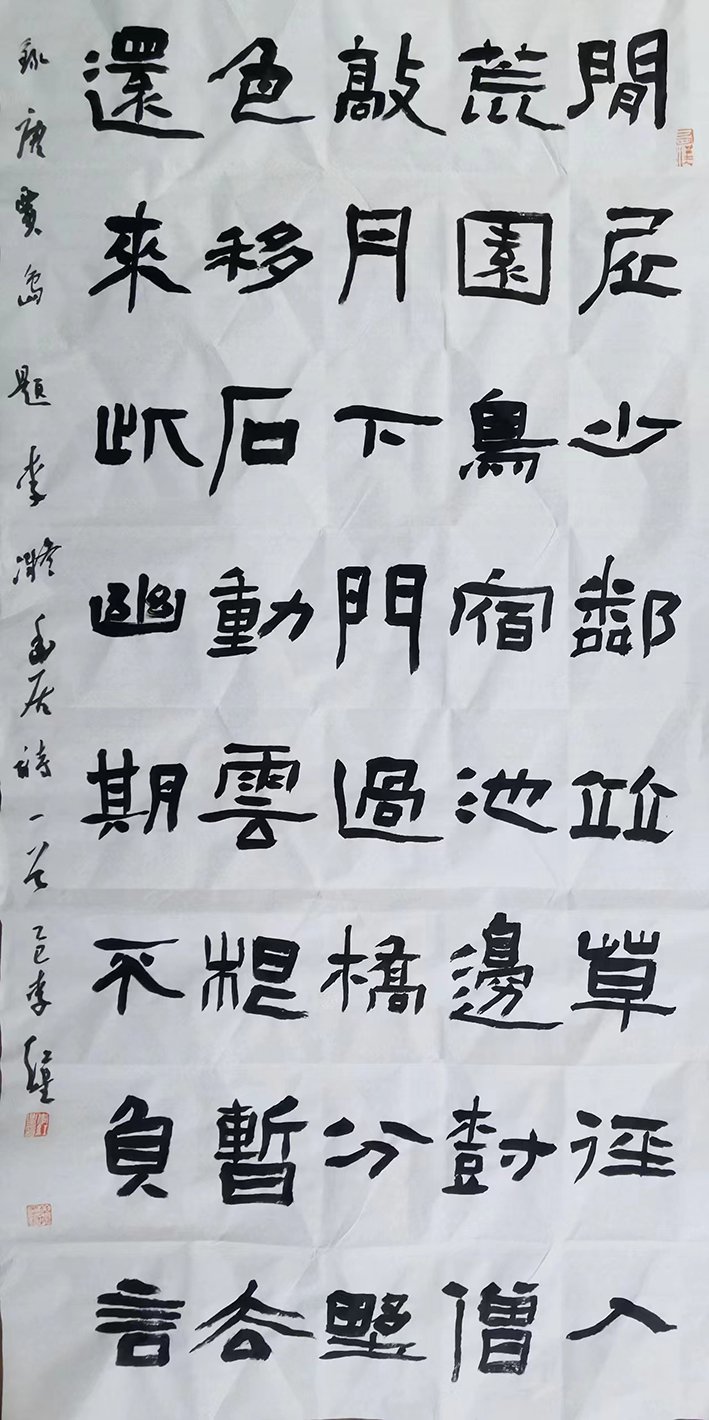 閒居少鄰竝草徑入
荒園鳥宿池邊樹僧
敲月下門過橋分野
色移石動雲根暫去
還來此幽期不負言
錄唐賈島題李凝幽居詩一首 乙巳李